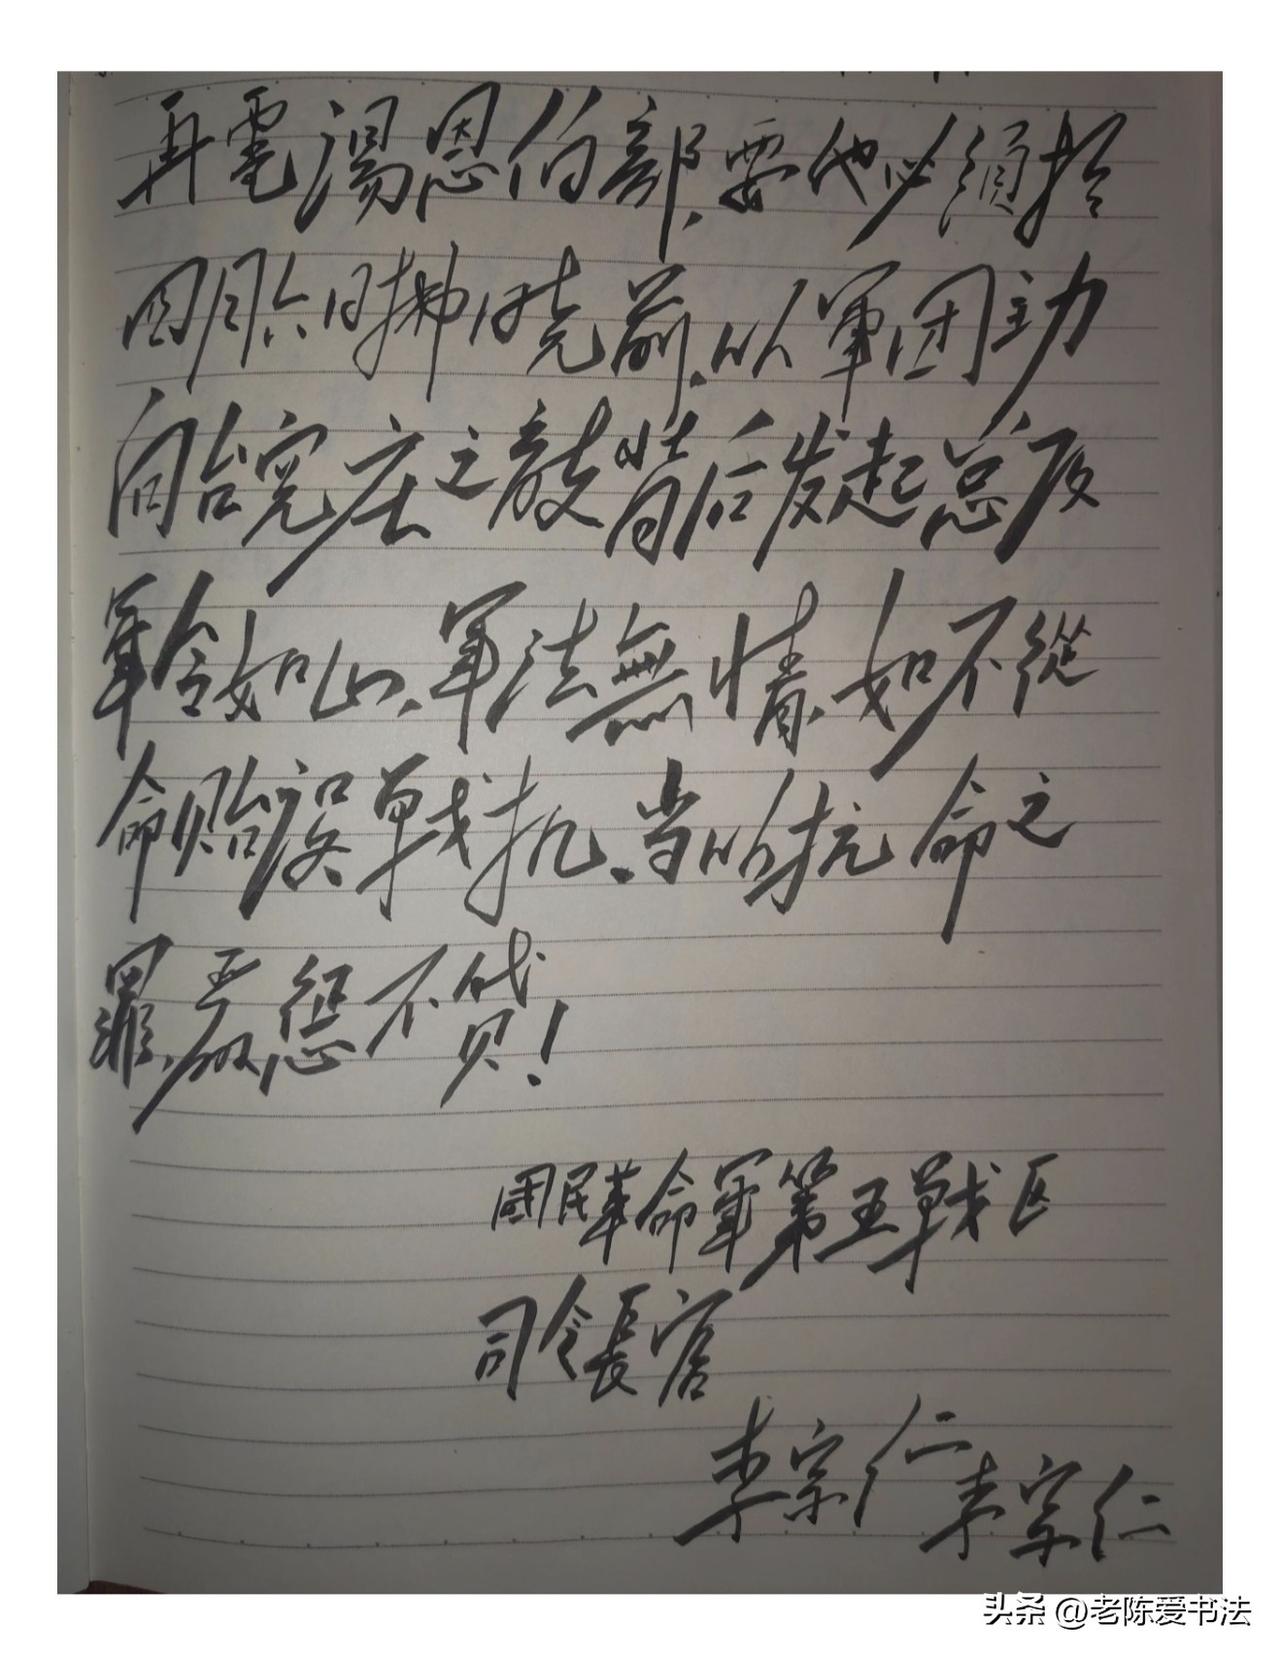 再電湯恩伯部,要他必須於
四月六日拂晓前,以軍团主力
向台兒庄之敵背后发起总反
軍令如山,軍法無情,如不從
命貽误戰机,当以抗命之
罪,严惩不贷!
國民革命軍第五戰区
司令長官
李宗仁 李宗仁
头条 @老陈爱书法